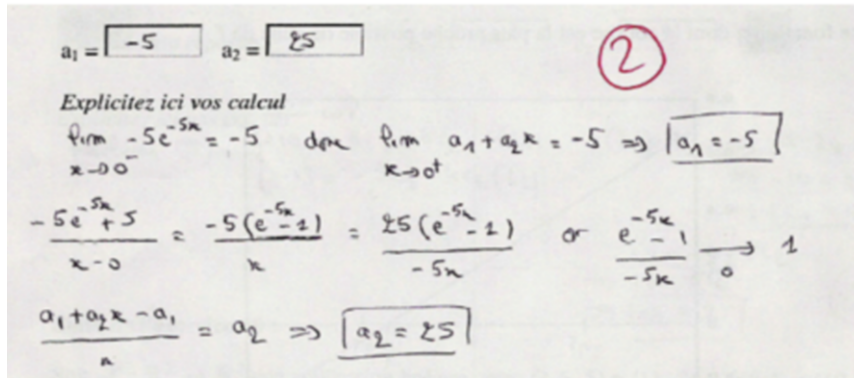 a₁ = -5 a₂ = 25
2
Explicitez ici vos calcul
lim -5e^{-5x} = -5 donc lim a₁ + a₂x = -5 ⇒ a₁ = -5
x→0⁻ x→0⁺
\frac{-5e^{-5x} + 5}{x - 0} = \frac{-5(e^{-5x} - 1)}{x} = \frac{25(e^{-5x} - 1)}{-5x} or \frac{e^{-5x} - 1}{-5x} →_0 1
\frac{a₁ + a₂x - a₁}{x} = a₂ ⇒ a₂ = 25